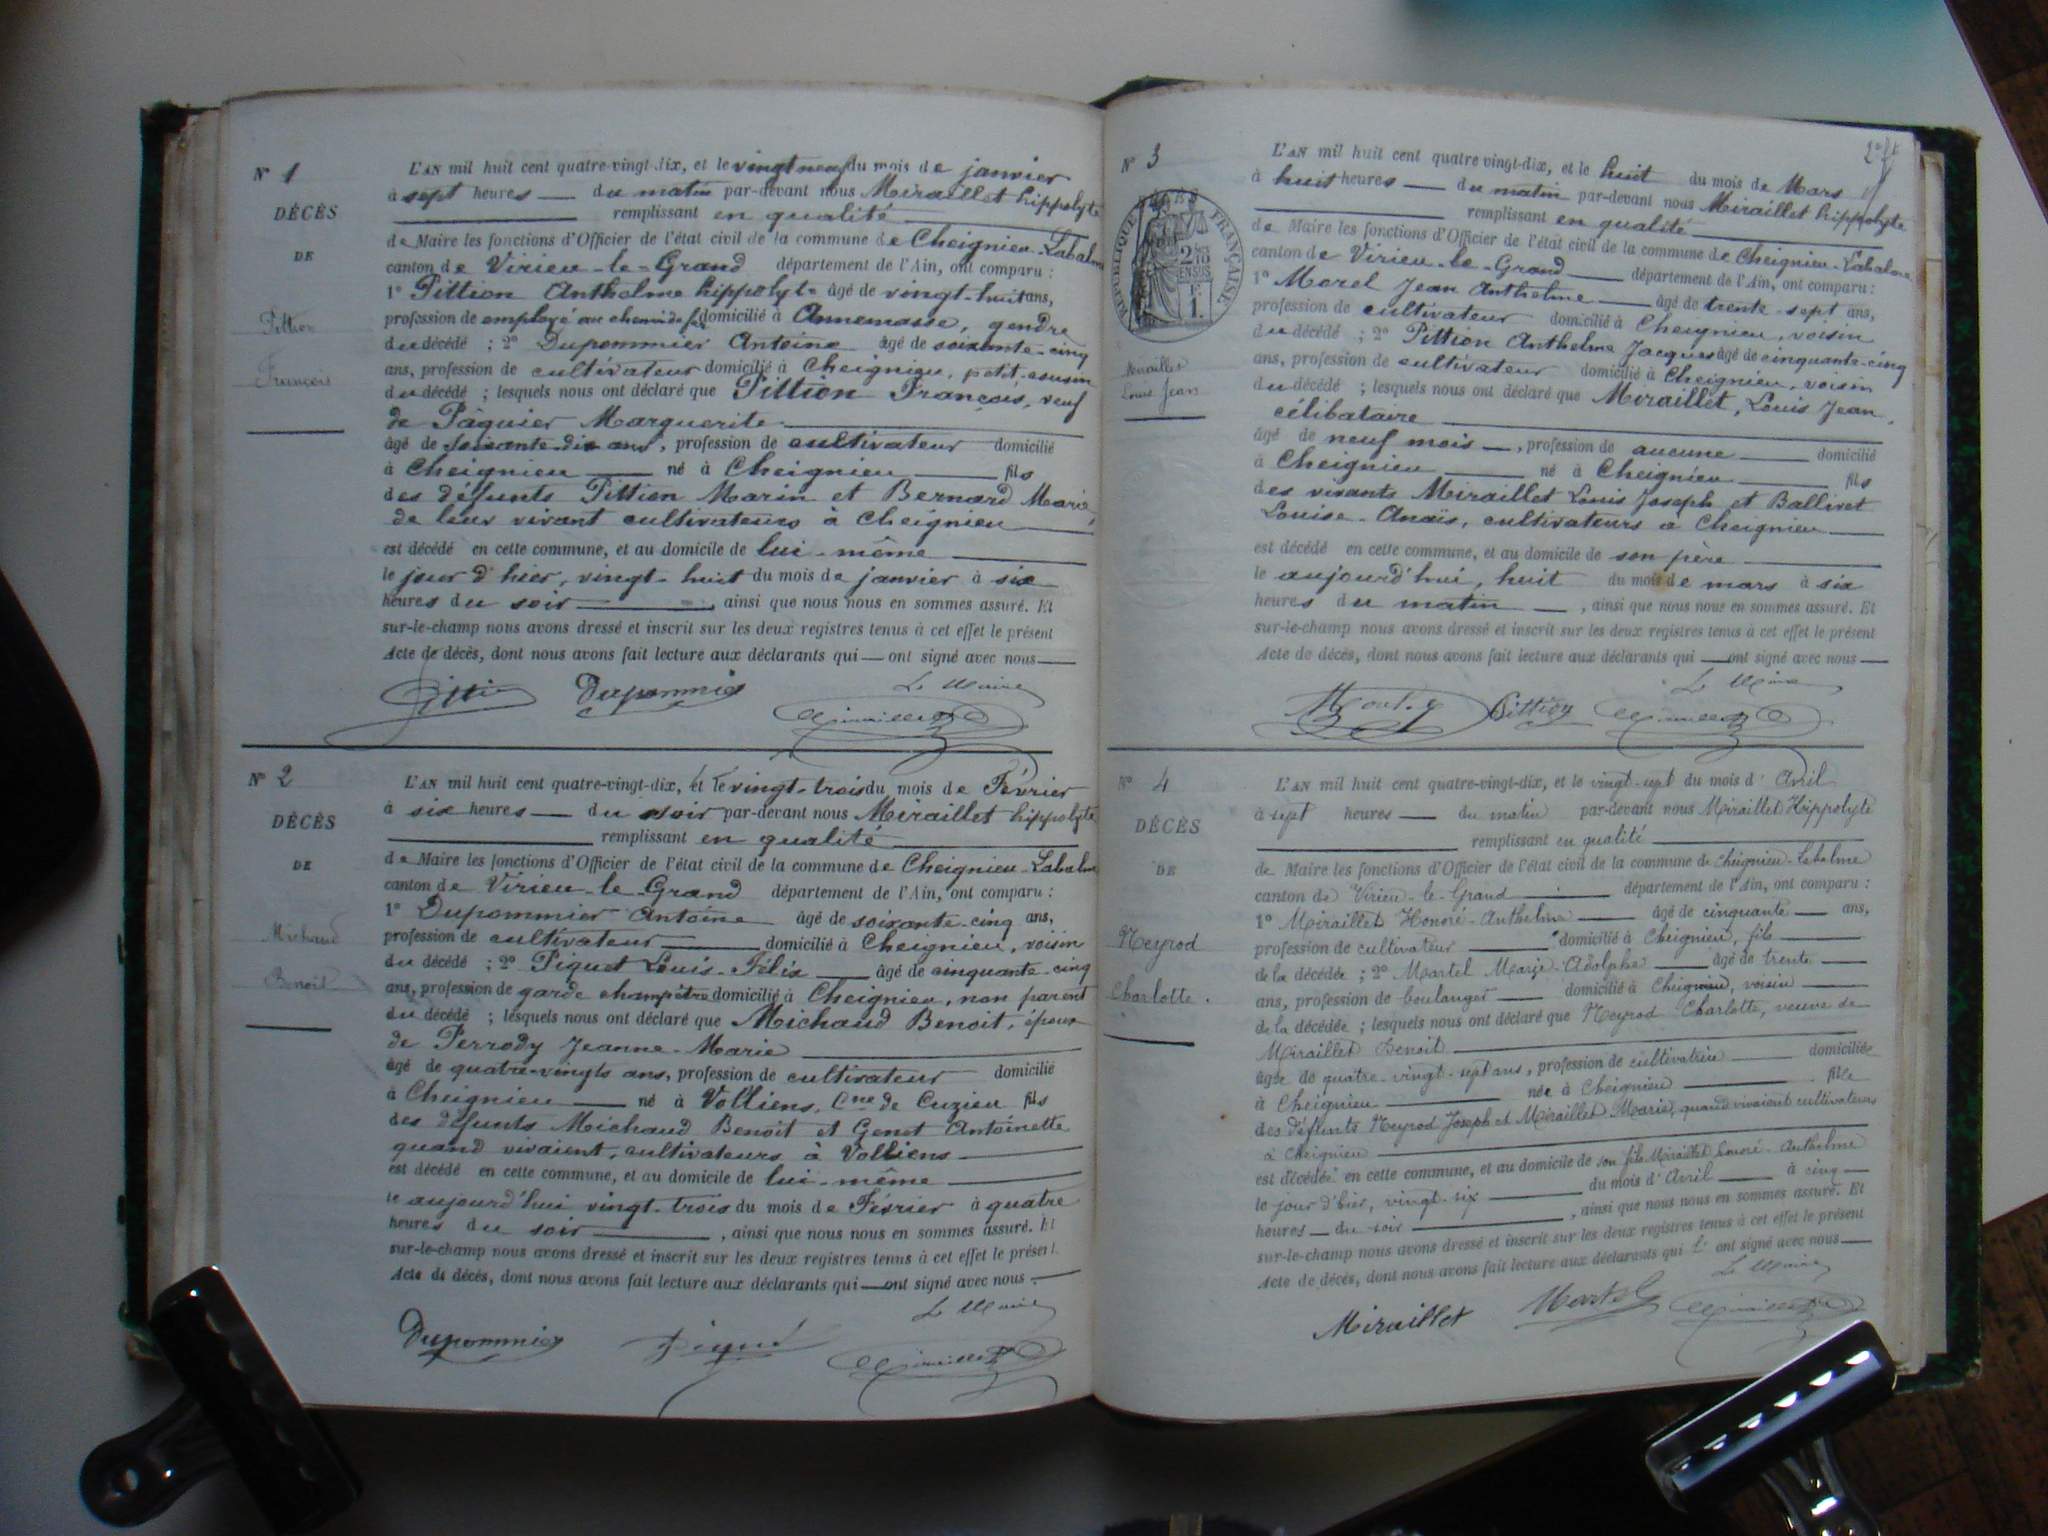 N° 1
DÉCÈS
DE
Pittion
François
L'AN mil huit cent quatre-vingt-dix, et le vingt neuf du mois de janvier
à sept heures du matin par-devant nous Miraillet hippolyte
remplissant en qualité
de Maire les fonctions d'Officier de l'état civil de la commune de Cheignieu-Labalme
canton de Virieu-le-Grand département de l'Ain, ont comparu :
1° Pittion Anthelme hippolyte âgé de vingt-huit ans,
profession de employé au chemin de fer domicilié à Annemasse, gendre
du décédé ; 2° Dupommier Antoine âgé de soixante-cinq
ans, profession de cultivateur domicilié à Cheignieu, petit-cousin
du décédé ; lesquels nous ont déclaré que Pittion François, veuf
de Pâquier Marguerite
âgé de soixante-dix ans, profession de cultivateur domicilié
à Cheignieu né à Cheignieu fils
des défunts Pittion Marin et Bernard Marie,
de leur vivant cultivateurs à Cheignieu
est décédé en cette commune, et au domicile de lui-même
le jour d'hier, vingt-huit du mois de janvier à six
heures du soir, ainsi que nous nous en sommes assuré. Et
sur-le-champ nous avons dressé et inscrit sur les deux registres tenus à cet effet le présent
Acte de décès, dont nous avons fait lecture aux déclarants qui ont signé avec nous
Le Maire
Pittion Dupommier Miraillet
N° 2
DÉCÈS
DE
Michaud
Benoit
L'AN mil huit cent quatre-vingt-dix, et le vingt-trois du mois de Février
à six heures du soir par-devant nous Miraillet hippolyte
remplissant en qualité
de Maire les fonctions d'Officier de l'état civil de la commune de Cheignieu-Labalme
canton de Virieu-le-Grand département de l'Ain, ont comparu :
1° Dupommier Antoine âgé de soixante-cinq ans,
profession de cultivateur domicilié à Cheignieu, voisin
du décédé ; 2° Piguet Louis-Félix âgé de cinquante-cinq
ans, profession de garde champêtre domicilié à Cheignieu, non parent
du décédé ; lesquels nous ont déclaré que Michaud Benoit, époux
de Perrody Jeanne-Marie
âgé de quatre-vingts ans, profession de cultivateur domicilié
à Cheignieu né à Volliens, Cne de Cuzieu fils
des défunts Michaud Benoit et Genet Antoinette
quand vivaient, cultivateurs à Volliens
est décédé en cette commune, et au domicile de lui-même
le aujourd'hui vingt-trois du mois de Février à quatre
heures du soir, ainsi que nous nous en sommes assuré. Et
sur-le-champ nous avons dressé et inscrit sur les deux registres tenus à cet effet le présent
Acte de décès, dont nous avons fait lecture aux déclarants qui ont signé avec nous
Le Maire
Dupommier Migué Miraillet
N° 3
RÉPUBLIQUE FRANÇAISE
2 10
EN SUS
F
1.
Miraillet
Louis Jean
L'AN mil huit cent quatre-vingt-dix, et le huit du mois de Mars
à huit heures du matin par-devant nous Miraillet hippolyte
remplissant en qualité
de Maire les fonctions d'Officier de l'état civil de la commune de Cheignieu-Labalme
canton de Virieu-le-Grand département de l'Ain, ont comparu :
1° Morel Jean Anthelme âgé de trente-sept ans,
profession de cultivateur domicilié à Cheignieu, voisin
du décédé ; 2° Pittion Anthelme Jacques âgé de cinquante-cinq
ans, profession de cultivateur domicilié à Cheignieu, voisin
du décédé ; lesquels nous ont déclaré que Miraillet, Louis Jean,
célibataire
âgé de neuf mois, profession de aucune domicilié
à Cheignieu né à Cheignieu fils
des vivants Miraillet Louis Joseph et Ballivet
Louise-Anaïs, cultivateurs à Cheignieu
est décédé en cette commune, et au domicile de son père
le aujourd'hui, huit du mois de mars à six
heures du matin, ainsi que nous nous en sommes assuré. Et
sur-le-champ nous avons dressé et inscrit sur les deux registres tenus à cet effet le présent
Acte de décès, dont nous avons fait lecture aux déclarants qui ont signé avec nous
Le Maire
Pittion Miraillet
N° 4
DÉCÈS
DE
Neyrod
Charlotte.
L'AN mil huit cent quatre-vingt-dix, et le vingt-sept du mois d'Avril
à sept heures du matin par-devant nous Miraillet Hippolyte
remplissant en qualité
de Maire les fonctions d'Officier de l'état civil de la commune de Cheignieu-Labalme
canton de Virieu-le-Grand département de l'Ain, ont comparu :
1° Miraillet Honoré-Anthelme âgé de cinquante ans,
profession de cultivateur domicilié à Cheignieu, fils
de la décédée ; 2° Martel Marie-Adolphe âgé de trente
ans, profession de boulanger domicilié à Cheignieu, voisin
de la décédée ; lesquels nous ont déclaré que Neyrod Charlotte, veuve de
Miraillet Benoit
âgée de quatre-vingt-sept ans, profession de cultivatrice domiciliée
à Cheignieu née à Cheignieu fille
des défunts Neyrod Joseph et Miraillet Marie, quand vivaient cultivateurs
à Cheignieu
est décédée en cette commune, et au domicile de son fils Miraillet Honoré-Anthelme
le jour d'hier, vingt-six du mois d'Avril à cinq
heures du soir, ainsi que nous nous en sommes assuré. Et
sur-le-champ nous avons dressé et inscrit sur les deux registres tenus à cet effet le présent
Acte de décès, dont nous avons fait lecture aux déclarants qui ont signé avec nous
Le Maire
Miraillet Martel Miraillet